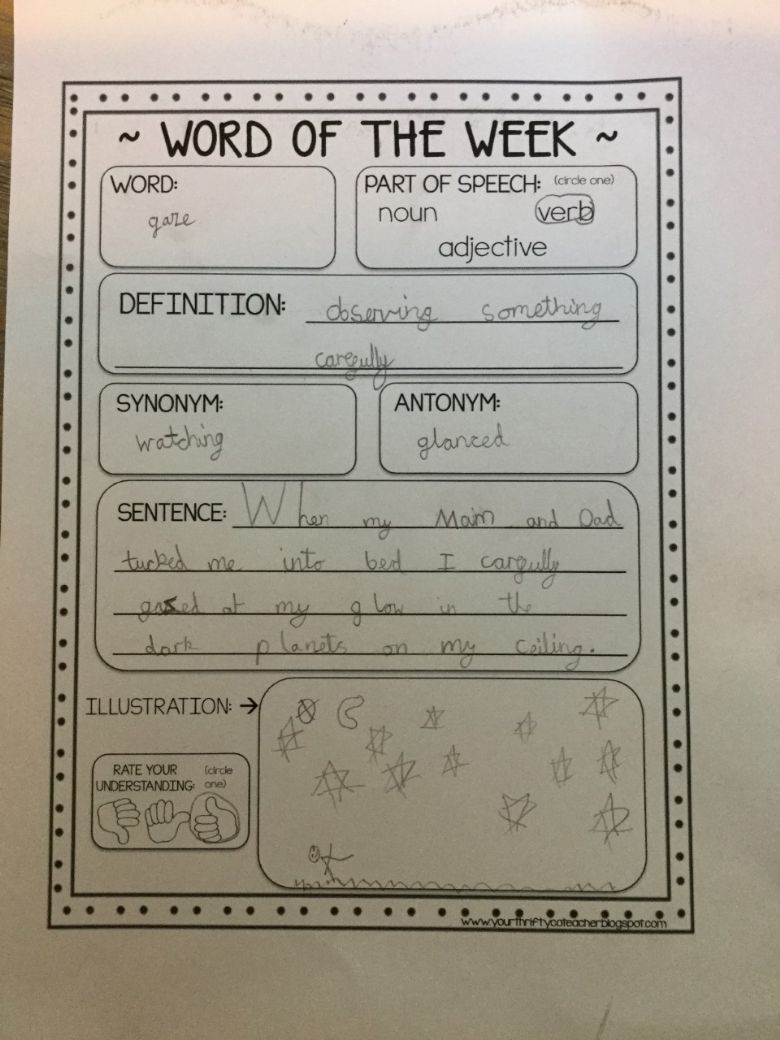 ~ WORD OF THE WEEK ~
WORD:
gaze
PART OF SPEECH: (circle one)
noun verb
adjective
DEFINITION: observing something
caregully
SYNONYM:
watching
ANTONYM:
glanced
SENTENCE: When my Mom and Dad
tucked me into bed I caregully
gazed at my glow in the
dark planets on my ceiling.
ILLUSTRATION: →
RATE YOUR (circle
UNDERSTANDING: one)
www.yourthriftycoteacher.blogspot.com